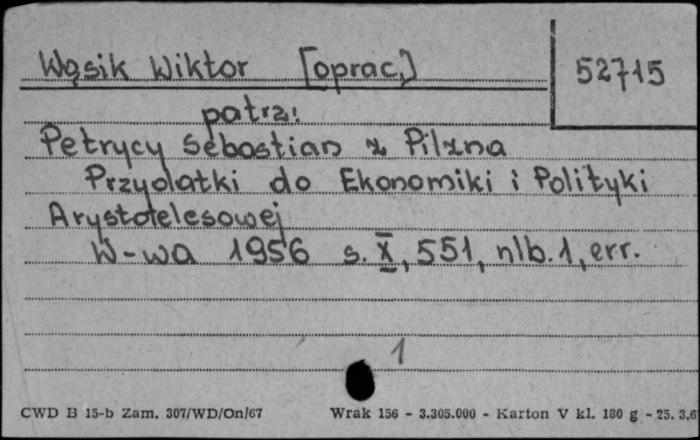 Wąsik Wiktor [oprac.] 52715
patrz:
Petrycy Sebastian z Pilzna
Przydatki do Ekonomiki i Polityki
Arystotelesowej
W-wa 1956 s. X, 551, nlb. 1, err.
1
CWD B 15-b Zam. 307/WD/On/67 Wrak 156 - 3.305.000 - Karton V kl. 180 g - 25. 3,6